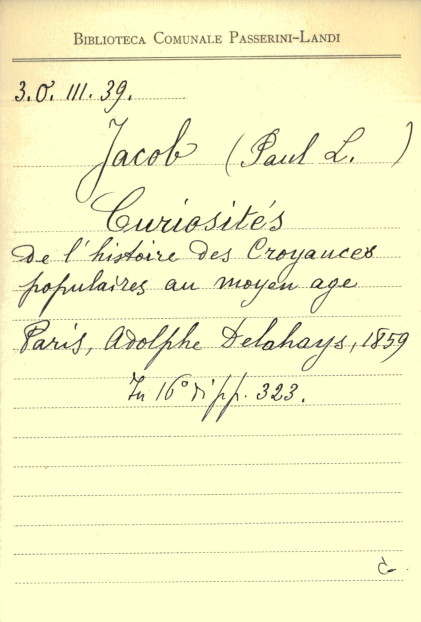 BIBLIOTECA COMUNALE PASSERINI-LANDI
3.O. III. 39.
Jacob (Paul L. )
Curiosités
de l'histoire des Croyances
populaires au moyen age
Paris, Adolphe Delahays, 1859
In 16° di pp. 323.